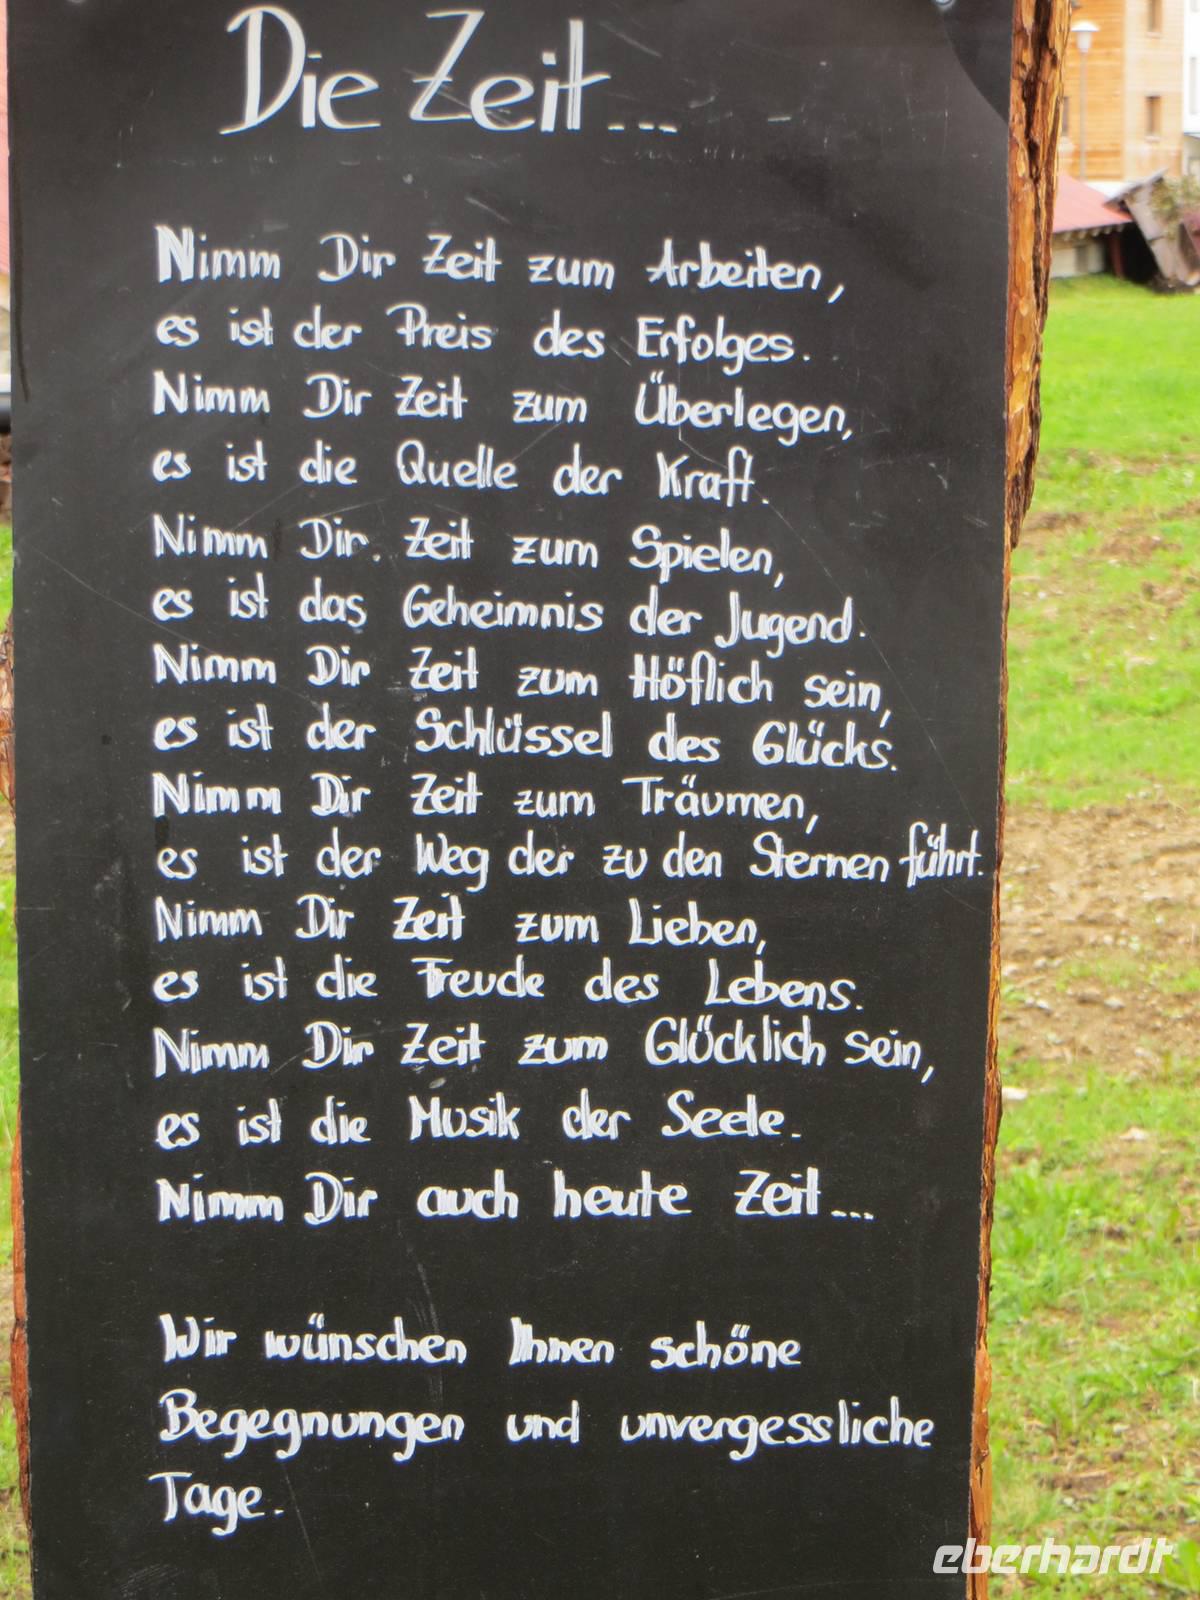 Die Zeit...
Nimm Dir Zeit zum Arbeiten,
es ist der Preis des Erfolges.
Nimm Dir Zeit zum Überlegen,
es ist die Quelle der Kraft.
Nimm Dir Zeit zum Spielen,
es ist das Geheimnis der Jugend.
Nimm Dir Zeit zum Höflich sein,
es ist der Schlüssel des Glücks.
Nimm Dir Zeit zum Träumen,
es ist der Weg der zu den Sternen führt.
Nimm Dir Zeit zum Lieben,
es ist die Freude des Lebens.
Nimm Dir Zeit zum Glücklich sein,
es ist die Musik der Seele.
Nimm Dir auch heute Zeit...
Wir wünschen Ihnen schöne
Begegnungen und unvergessliche
Tage.
eberhardt